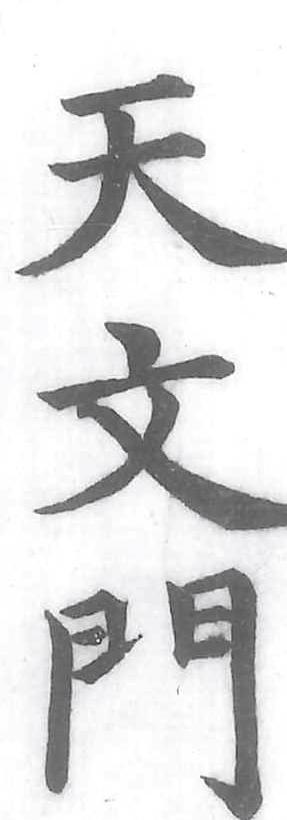 天文門